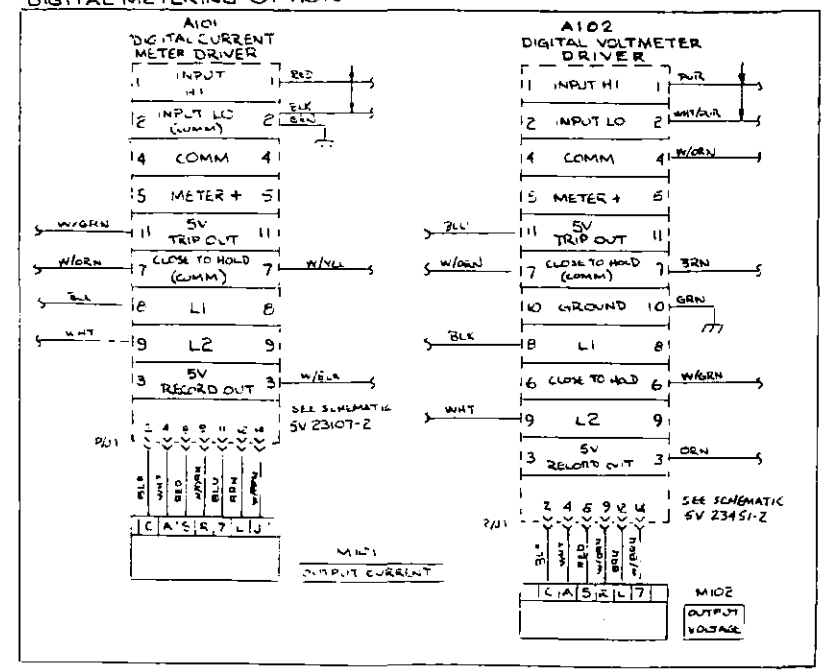 DIGITAL METERING OPTION
A101
DIGITAL CURRENT
METER DRIVER
1 INPUT HI 1 RED
2 INPUT LO (COMM) 2 BLK
BRN
4 COMM 4
5 METER + 5
W/GRN 11 5V TRIP OUT 11
W/ORN 7 CLOSE TO HOLD (COMM) 7 W/YEL
BLK 8 L1 8
WHT 9 L2 9
3 5V RECORD OUT 3 W/BLK
SEE SCHEMATIC
5V 23107-2
P/J1
BLK WHT RED W/ORN BLU BRN
C A 5 R 7 L J
M101
OUTPUT CURRENT
A102
DIGITAL VOLTMETER
DRIVER
1 INPUT HI 1 PUR
2 INPUT LO 2 WHT/PUR
4 COMM 4 W/ORN
5 METER + 5
BLU 11 5V TRIP OUT 11
7 CLOSE TO HOLD (COMM) 7 BRN
10 GROUND 10 GRN
BLK 8 L1 8
6 CLOSE TO HOLD 6 W/GRN
WHT 9 L2 9
3 5V RECORD OUT 3 ORN
SEE SCHEMATIC
5V 23451-2
P/J1
2 4 6 9 12
BLK WHT RED W/ORN BRN
C A 5 R L 7
M102
OUTPUT
VOLTAGE